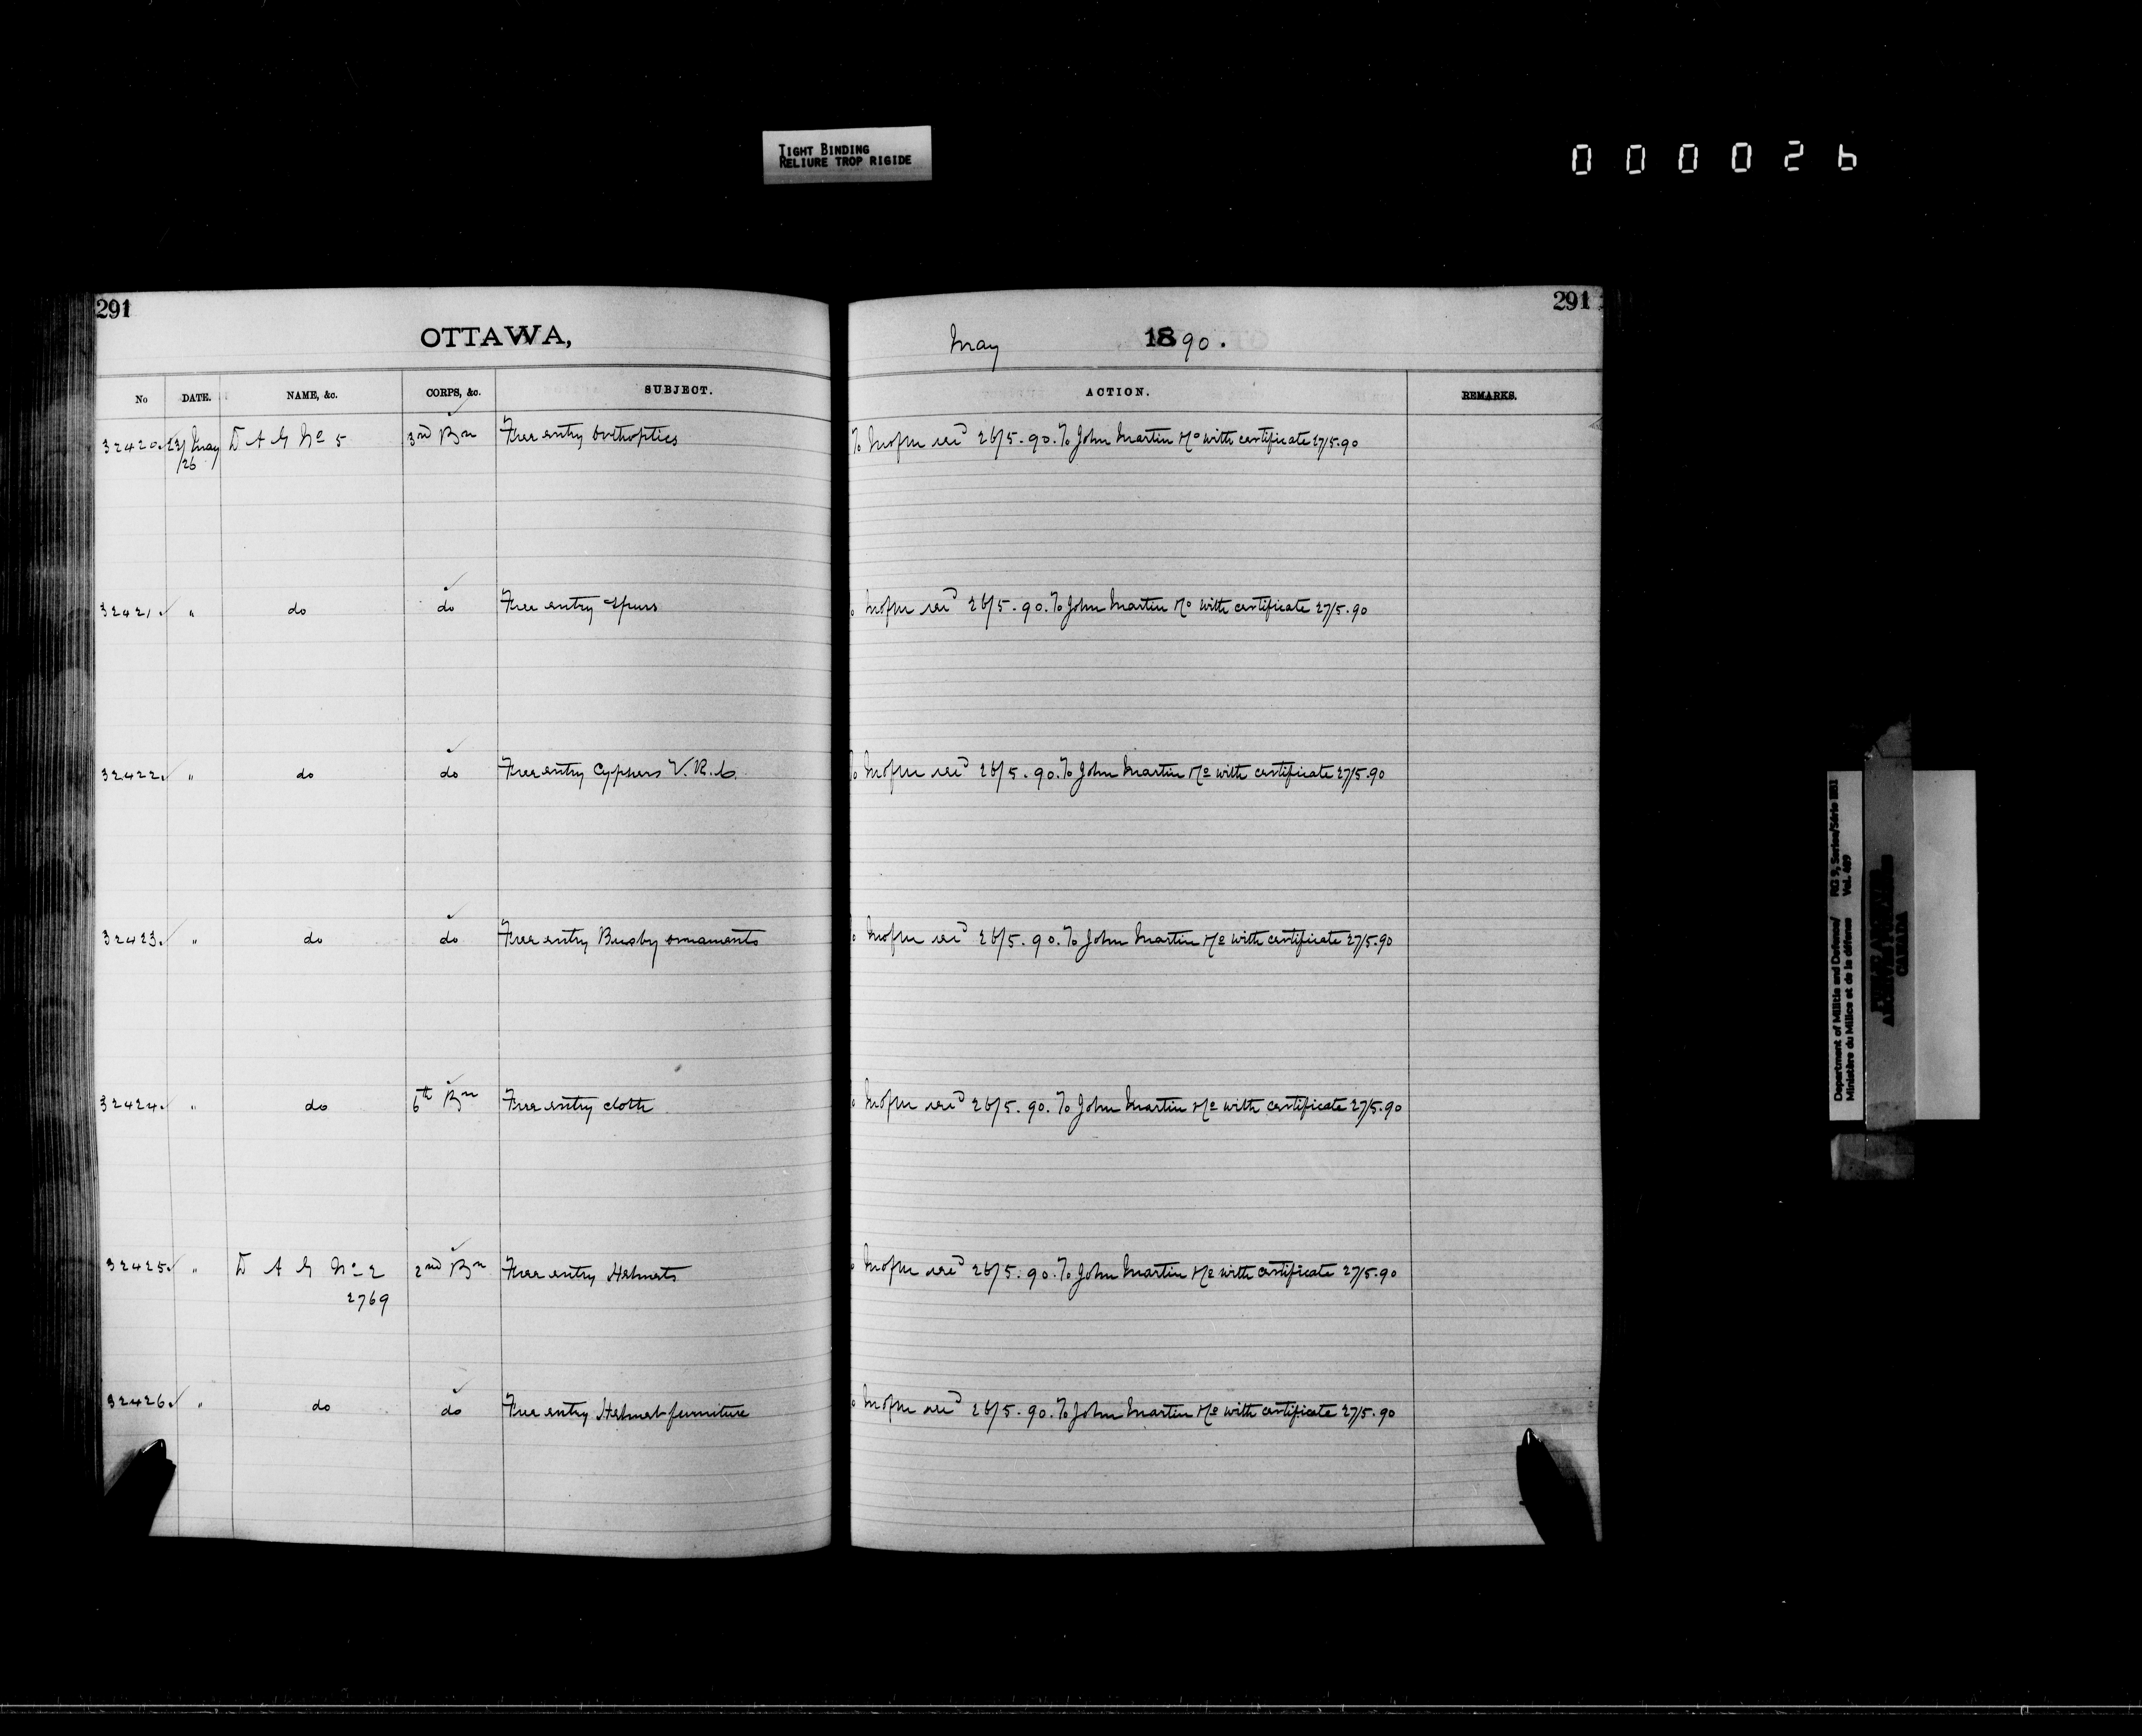 TIGHT BINDING
RELIURE TROP RIGIDE
000026
291
291
OTTAWA, May 1890.
No DATE. NAME, &c. CORPS, &c. SUBJECT. ACTION. REMARKS.
32420 23/ May D A G No 5 3rd Bn Free entry Orthoptics To 26/5.90. To John Martin with certificate 27/5.90
/26
32421 " do do Free entry Spurs 26/5.90. To John Martin with certificate 27/5.90
32422 " do do Free entry Cyphers V.R.I. 26/5.90. To John Martin with certificate 27/5.90
32423 " do do Free entry Busby ornaments 26/5.90. To John Martin with certificate 27/5.90
32424 " do 6th Bn Free entry cloth 26/5.90. To John Martin with certificate 27/5.90
32425 " D A G No 2 2nd Bn Free entry Helmets 26/5.90. To John Martin with certificate 27/5.90
2769
32426 " do do Free entry Helmet furniture 26/5.90. To John Martin with certificate 27/5.90
Department of Militia and Defence/ RG 9, Series/Série
Ministère du Milice et de la défense Vol.